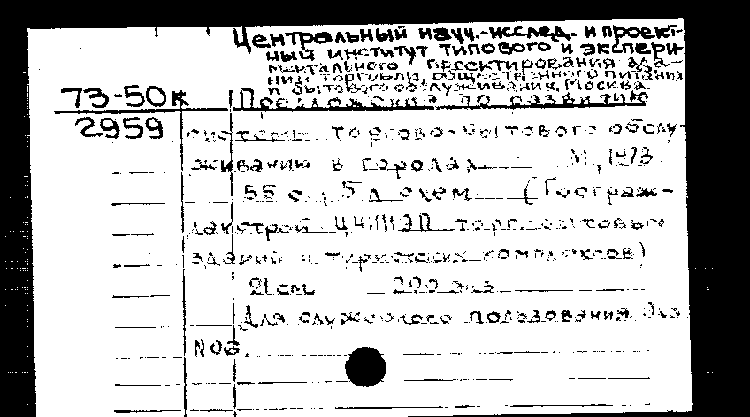 Центральный науч.-исслед. и проект-
ный институт типового и экспери-
ментального проектирования зда-
ний торговли, общественного питания
и бытового обслуживания, Москва.
73-50к Предложения по развитию
2959 системы торгово-бытового обслу-
живания в городах М., 1973
55 с., 5 л схем (Госграж-
данстрой ЦНИИЭП торг.-бытовых
зданий и туристских комплексов)
21 см 200 экз
Для служебного пользования Экз
N06.